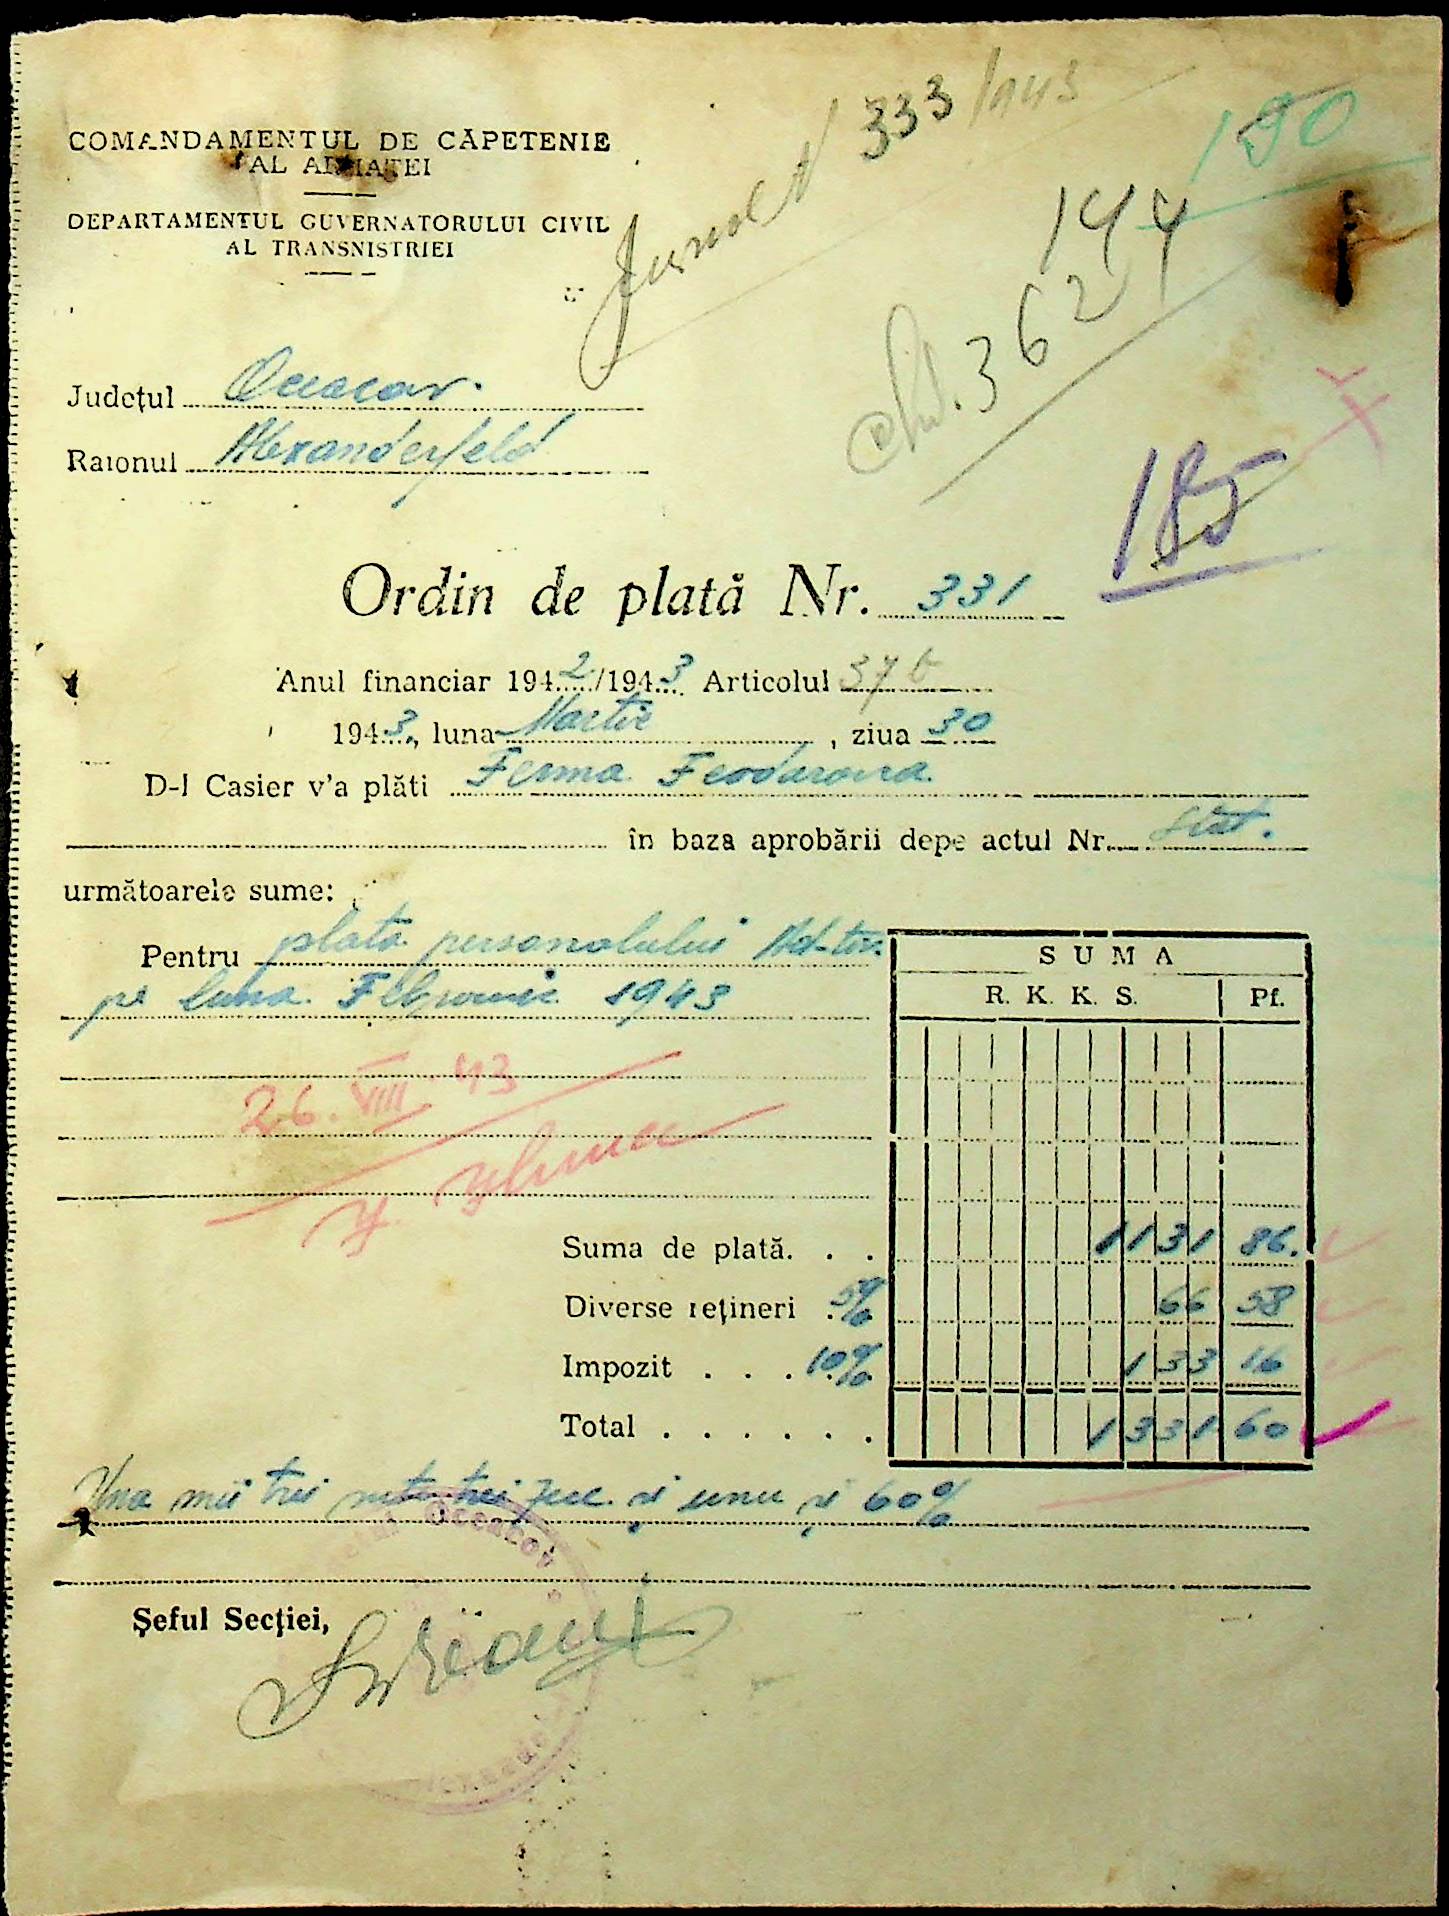 COMANDAMENTUL DE CĂPETENIE
AL ARMATEI
DEPARTAMENTUL GUVERNATORULUI CIVIL
AL TRANSNISTRIEI
Jurnal N 333/943
190
144
3621
185
Județul Oceacov.
Raionul Alexanderfeld
Ordin de plată Nr. 331
Anul financiar 1942/1943 Articolul 37 b
1943, luna Martie, ziua 30
D-l Casier v'a plăti Ferma Feodarovca
în baza aprobării depe actul Nr.
următoarele sume:
Pentru plata personalului Ad-tiv.
pe luna Februarie 1943
SUMA
R. K. K. S. Pf.
26. VIII 43
Suma de plată. . . 1131 86.
Diverse rețineri . 5% 66 58
Impozit . . . 10% 133 16
Total . . . . . . . 1331 60
Una mii trei sute trei zece și unu și 60%
Oceacov
Șeful Secției,